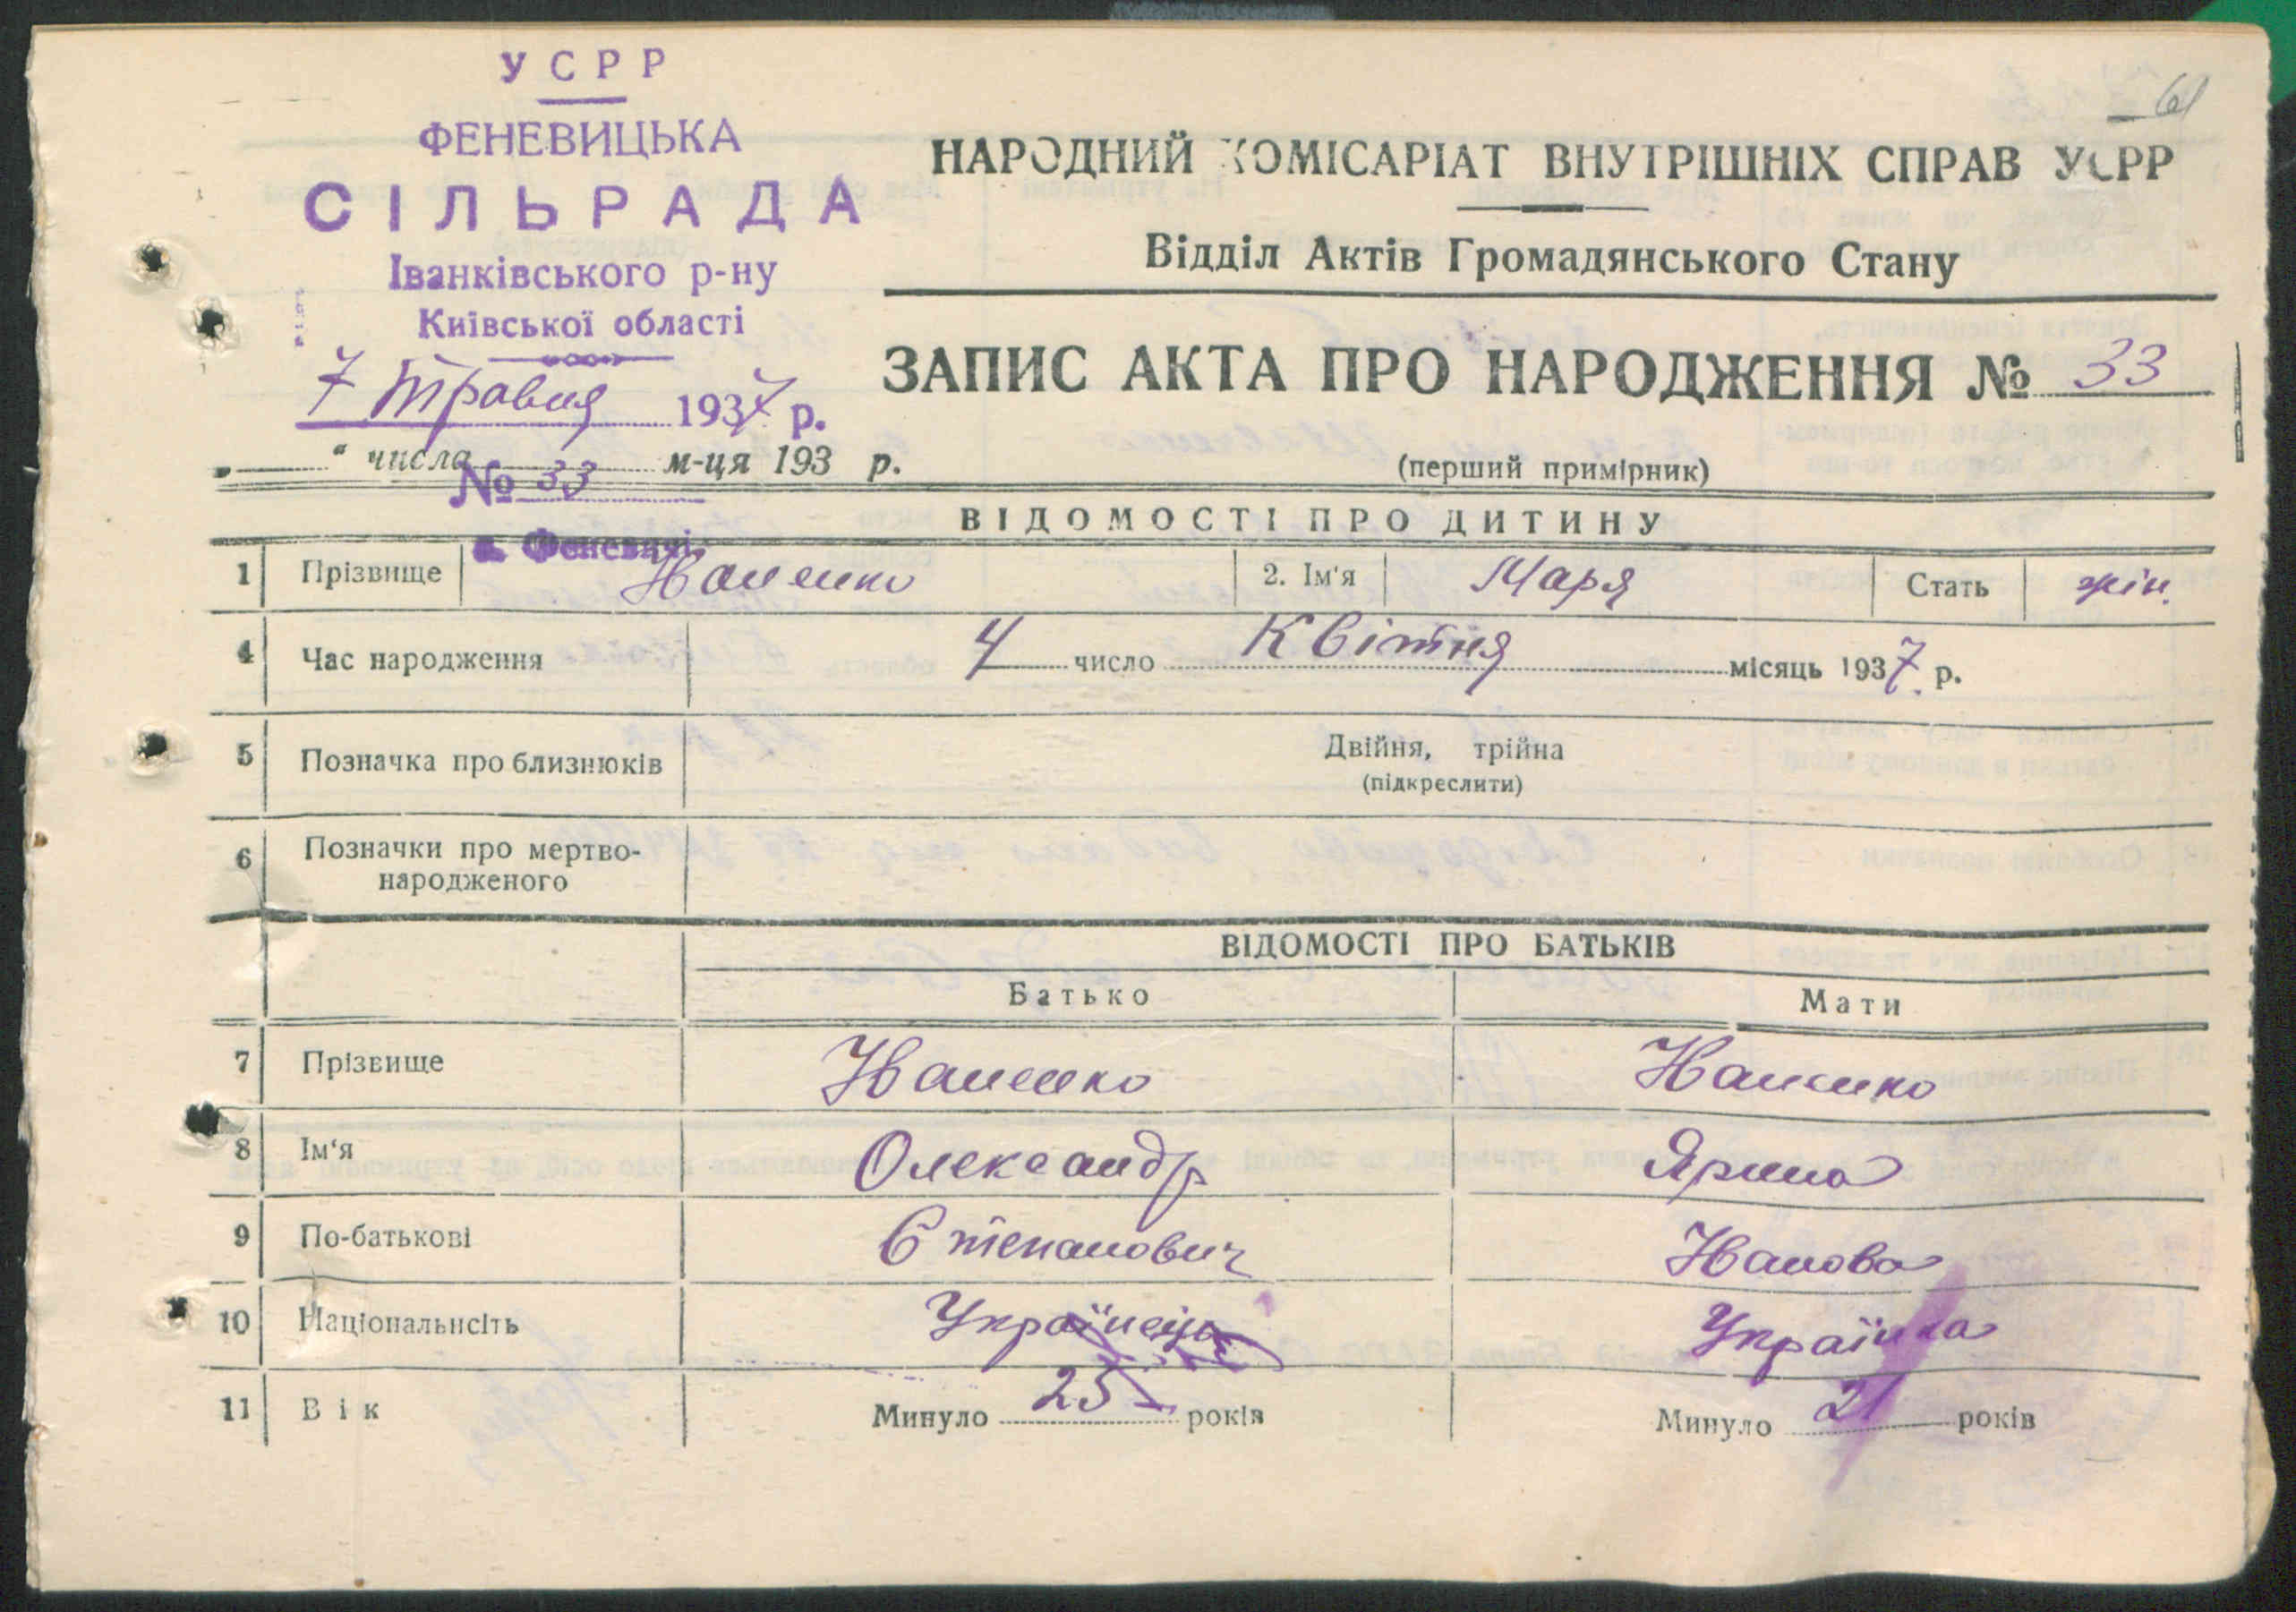 61
УСРР
ФЕНЕВИЦЬКА
СІЛЬРАДА
Іванківського р-ну
Київської області
7 травня 1937 р.
№ 33
с. Феневичі
НАРОДНИЙ КОМІСАРІАТ ВНУТРІШНІХ СПРАВ УСРР
Відділ Актів Громадянського Стану
ЗАПИС АКТА ПРО НАРОДЖЕННЯ № 33
„ “ числа м-ця 193 р.
(перший примірник)
ВІДОМОСТІ ПРО ДИТИНУ
1 Прізвище Іваненко 2. Ім'я Маря Стать жін.
4 Час народження 4 число Квітня місяць 1937 р.
5 Позначка про близнюків Двійня, трійна
(підкреслити)
6 Позначки про мертво-
народженого
ВІДОМОСТІ ПРО БАТЬКІВ
Батько Мати
7 Прізвище Іваненко Іваненко
8 Ім'я Олександр Ярина
9 По-батькові Степанович Іванова
10 Національність Українець Українка
11 Вік Минуло 25 років Минуло 21 років